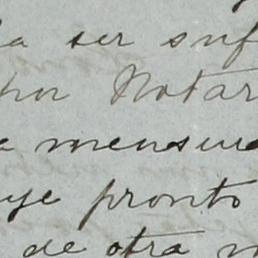 a ser suf
por Notar
e mensu
uye pronto
de otra